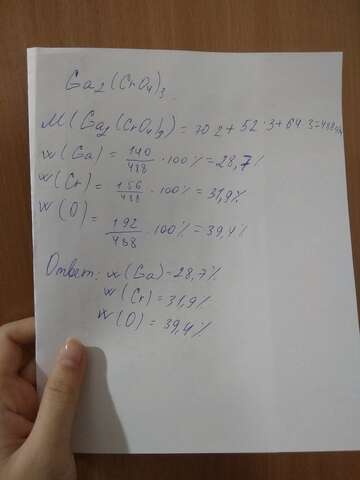 Ga₂(CrO₄)₃
M(Ga₂(CrO₄)₃) = 70·2+52·3+64·3=488
w(Ga) = 140/488 · 100% = 28,7%
w(Cr) = 156/488 · 100% = 31,9%
w(O) = 192/488 · 100% = 39,4%
Ответ: w(Ga)=28,7%
w(Cr)=31,9%
w(O)=39,4%